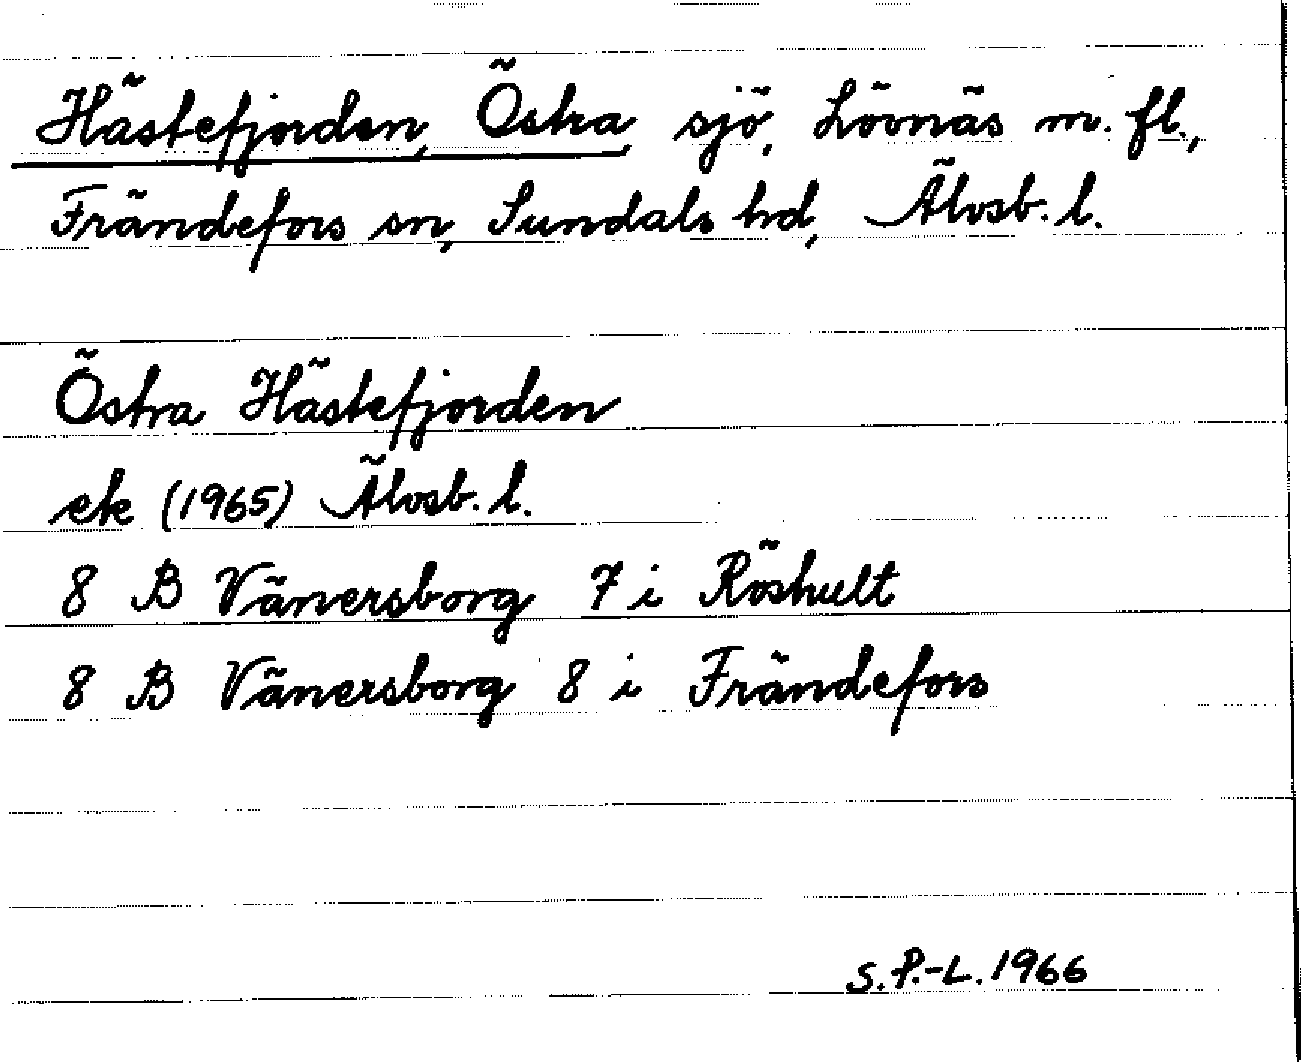 Hästefjorden, Östra, sjö, Lövnäs m. fl.,
Frändefors sn, Sundals hd, Älvsb. l.
Östra Hästefjorden
ek (1965) Älvsb. l.
8 B Vänersborg 7 i Röshult
8 B Vänersborg 8 i Frändefors
S. P.-L. 1966